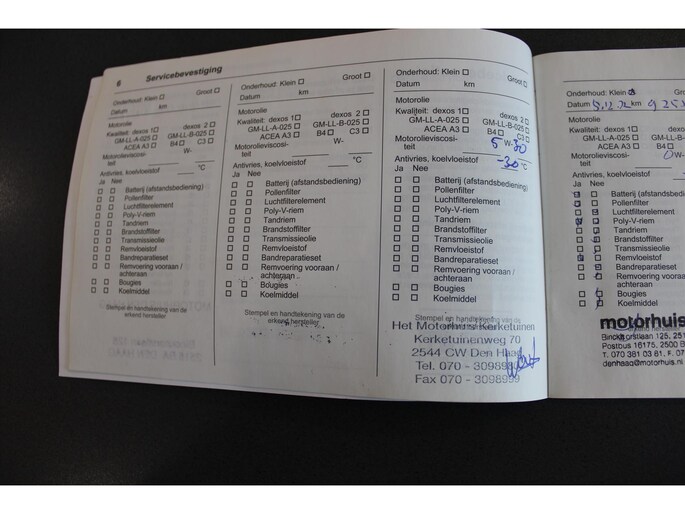 6 Servicebevestiging
Onderhoud: Klein Groot
Datum km
Motorolie
Kwaliteit: dexos 1 dexos 2
GM-LL-A-025 GM-LL-B-025
ACEA A3 B4 C3
Motorolieviscosi-
teit W-
Antivries, koelvloeistof °C
Ja Nee
Batterij (afstandsbediening)
Pollenfilter
Luchtfilterelement
Poly-V-riem
Tandriem
Brandstoffilter
Transmissieolie
Remvloeistof
Bandreparatieset
Remvoering vooraan /
achteraan
Bougies
Koelmiddel
Stempel en handtekening van de
erkend hersteller
Onderhoud: Klein Groot
Datum km
Motorolie
Kwaliteit: dexos 1 dexos 2
GM-LL-A-025 GM-LL-B-025
ACEA A3 B4 C3
Motorolieviscosi-
teit W-
Antivries, koelvloeistof °C
Ja Nee
Batterij (afstandsbediening)
Pollenfilter
Luchtfilterelement
Poly-V-riem
Tandriem
Brandstoffilter
Transmissieolie
Remvloeistof
Bandreparatieset
Remvoering vooraan /
achteraan
Bougies
Koelmiddel
Stempel en handtekening van de
Onderhoud: Klein Groot
Datum km
Motorolie
Kwaliteit: dexos 1 dexos 2
GM-LL-A-025 GM-LL-B-025
ACEA A3 B4 C3
Motorolieviscosi-
teit 5 W-30
Antivries, koelvloeistof -30 °C
Ja Nee
Batterij (afstandsbediening)
Pollenfilter
Luchtfilterelement
Poly-V-riem
Tandriem
Brandstoffilter
Transmissieolie
Remvloeistof
Bandreparatieset
Remvoering vooraan /
achteraan
Bougies
Koelmiddel
Stempel en handtekening van de
Het Motorhuis Kerketuinen
Kerketuinenweg 70
2544 CW Den Haag
Tel. 070 - 3098980
Fax 070 - 3098999
Onderhoud: Klein
Datum km
Motorolie
Kwaliteit: dexos 1
GM-LL-A-025
ACEA A3
Motorolieviscosi-
teit
Antivries, koelvloeistof
Ja Nee
Batterij (afstandsb
Pollenfilter
Luchtfilterelement
Poly-V-riem
Tandriem
Brandstoffilter
Transmissieolie
Remvloeistof
Bandreparatieset
Remvoering vooraan
achteraan
Bougies
Koelmiddel
motorhuis
Binckhorstlaan 125, 251
Postbus 16175, 2500 B
T. 070 381 03 81. F. 07
denhaag@motorhuis.nl